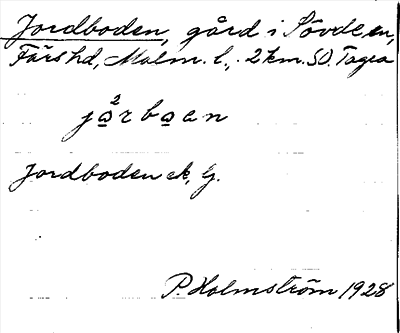 Jordboden, gård i Sövde sn,
Färs hd, Malm. l., 2 km. SO. Tagea
jo²rboan
Jordboden ek, G.
P. Holmström 1928